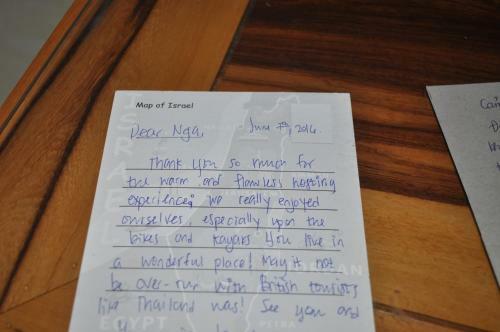 Map of Israel
Dear Nga, June 7th, 2016.
Thank you so much for
the warm and flawless hosting
experience; we really enjoyed
ourselves, especially upon the
bikes and kayaks. You live in
a wonderful place! May it not
be over-run with British tourists
like Thailand was! See you and
ISRAEL
EGYPT
PETRA